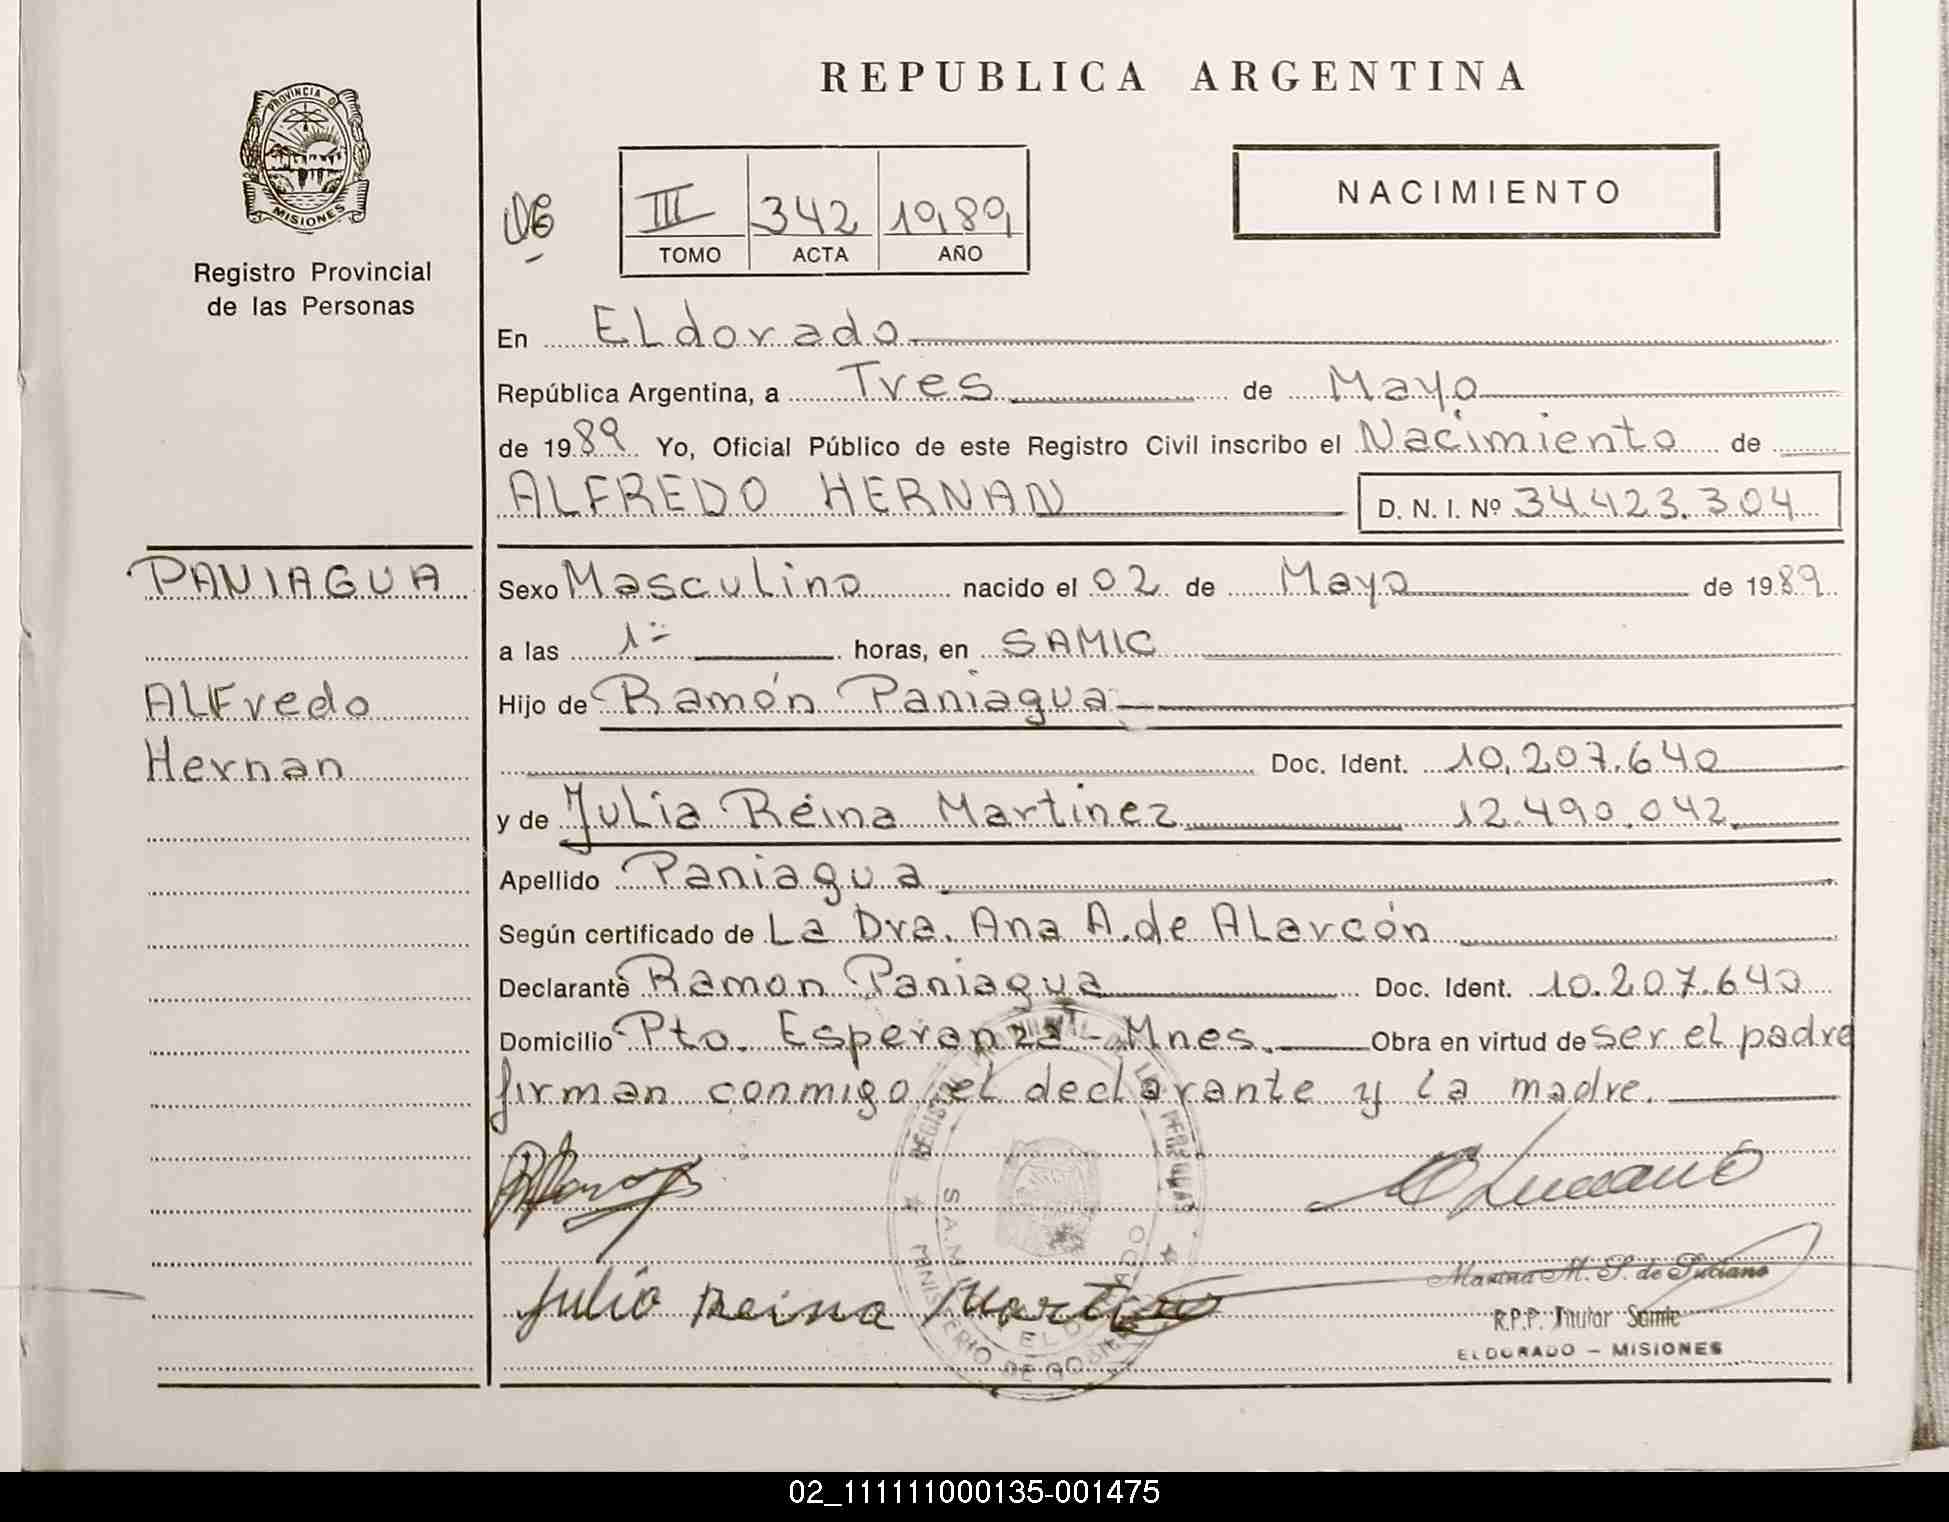 REPUBLICA ARGENTINA
PROVINCIA D
MISIONES
Registro Provincial
de las Personas
III 342 1989
TOMO ACTA AÑO
NACIMIENTO
En Eldorado
República Argentina, a Tres de Mayo
de 1989 Yo, Oficial Público de este Registro Civil inscribo el Nacimiento de
ALFREDO HERNAN D. N. I. Nº 34.423.304
PANIAGUA
Alfredo
Hernan
Sexo Masculino nacido el 02 de Mayo de 1989
a las 1= horas, en SAMIC
Hijo de Ramón Paniagua
Doc. Ident. 10.207.640
y de Julia Reina Martinez 12.490.042
Apellido Paniagua
Según certificado de La Dra. Ana A. de Alarcón
Declarante Ramon Paniagua Doc. Ident. 10.207.640
Domicilio Pto. Esperanza - Mnes. Obra en virtud de ser el padre
firman conmigo el declarante y la madre.
Julio Reina Martinez
Marina M. S. de Luciano
R.P.P. Titular Samic
ELDORADO - MISIONES
02_111111000135-001475